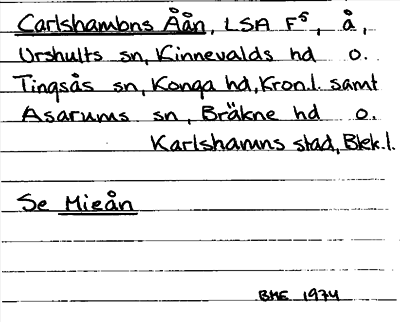 Carlshambns Åån, LSA F⁵, å,
Urshults sn, Kinnevalds hd o.
Tingsås sn, Konga hd, Kron.l. samt
Asarums sn, Bräkne hd o.
Karlshamns stad, Blek.l.
Se Mieån
BME 1974